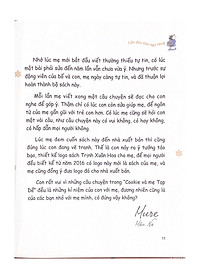 Nhớ lúc mẹ mới bắt đầu viết thường thiếu tự tin, có lúc
một bài phải sửa đến năm lần vẫn chưa vừa ý. Nhưng trước sự
động viên của bố và con, mẹ ngày càng tự tin, và đã thuận lợi
hoàn thành bộ sách này.
Mỗi lần mẹ viết xong một câu chuyện sẽ đọc cho con
nghe để góp ý. Thậm chí có lúc con còn giúp mẹ, để ngôn từ
của mẹ gần gũi với trẻ con hơn. Có lúc mẹ cũng sẽ hỏi con
một vài câu, như câu chuyện này có vui không, có hay không,
có hấp dẫn mọi người không.
Lúc mẹ đem cuốn sách này đến nhà xuất bản thì cũng
đúng lúc con đang vẽ tranh. Thế là con nảy ra ý tưởng táo
bạo, thiết kế logo sách Trịnh Xuân Hoa cho mẹ, để mọi người
đều biết kể từ năm 2016 có logo này mới là sách của mẹ, và
mẹ cũng đồng ý đưa logo này cho nhà xuất bản.
Con rất vui vì những câu chuyện trong "Cookie và mẹ Tạp
Dề" đều là những kỉ niệm của con với mẹ, đương nhiên cũng là
của các bạn nhỏ với mẹ mình, có đúng vậy không?
Muse
11